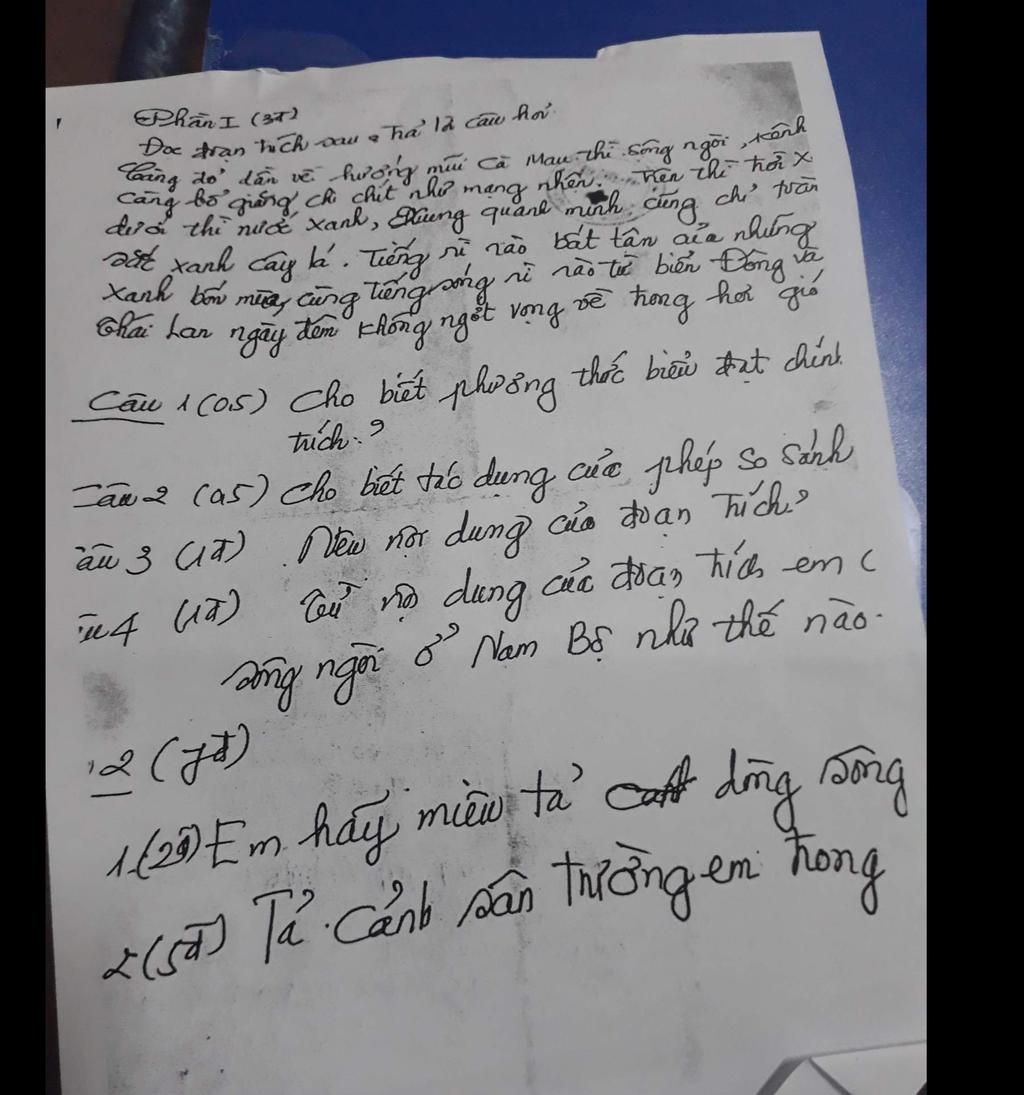 Phần I (3đ)
Đọc đoạn trích sau, trả lời câu hỏi
Càng đổ dần về hướng mũi Cà Mau thì sông ngòi, kênh
càng bổ giăng chi chít như mạng nhện. Trên thì trời x
dưới thì nước xanh, chung quanh mình cũng chỉ toàn
sắc xanh cây lá. Tiếng rì rào bất tận của những
xanh bốn mùa, cùng tiếng sóng rì rào từ biển Đông và
Thái Lan ngày đêm không ngớt vọng về trong hơi gió
Câu 1 (0.5) Cho biết phương thức biểu đạt chính
trích?
Câu 2 (0.5) Cho biết tác dụng của phép so sánh
âu 3 (1đ) Nêu nội dung của đoạn trích?
u 4 (1đ) Từ nội dung của đoạn trích em c
sông ngòi ở Nam Bộ như thế nào.
2 (7đ)
1. (2đ) Em hãy miêu tả dòng sông
2 (5đ) Tả cảnh sân trường em trong